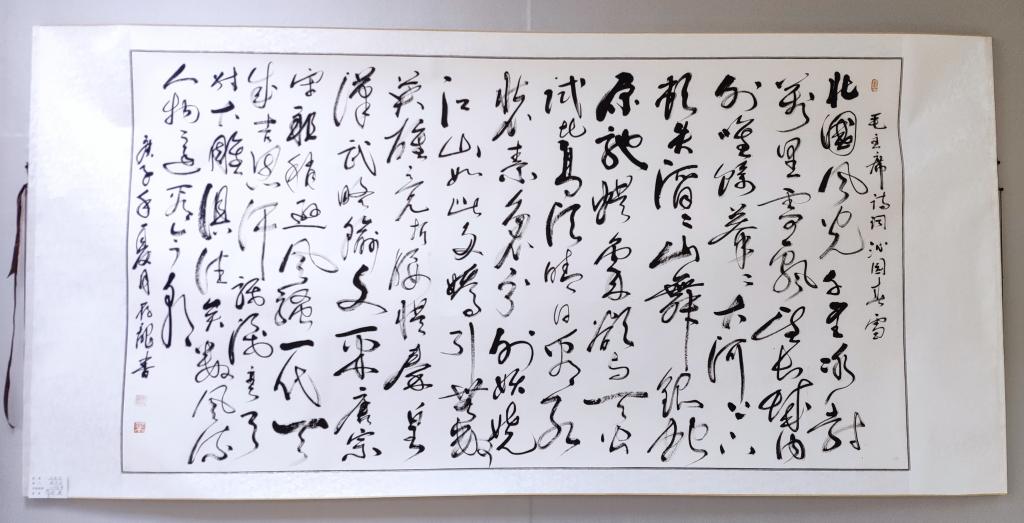 毛主席诗词沁园春雪
北國风光千里冰封
萬里雪飘望长城内
外唯馀莽〻大河上下
顿失滔〻山舞银蛇
原驰蜡象欲与天公
试比高须晴日看红
装素裹分外妖娆
江山如此多娇引无数
英雄竞折腰惜秦皇
漢武略输文采唐宗
宋祖稍逊风骚一代天
成吉思汗识弯弓
射大雕俱往矣数风流
人物还看今朝
庚子年夏月龍書